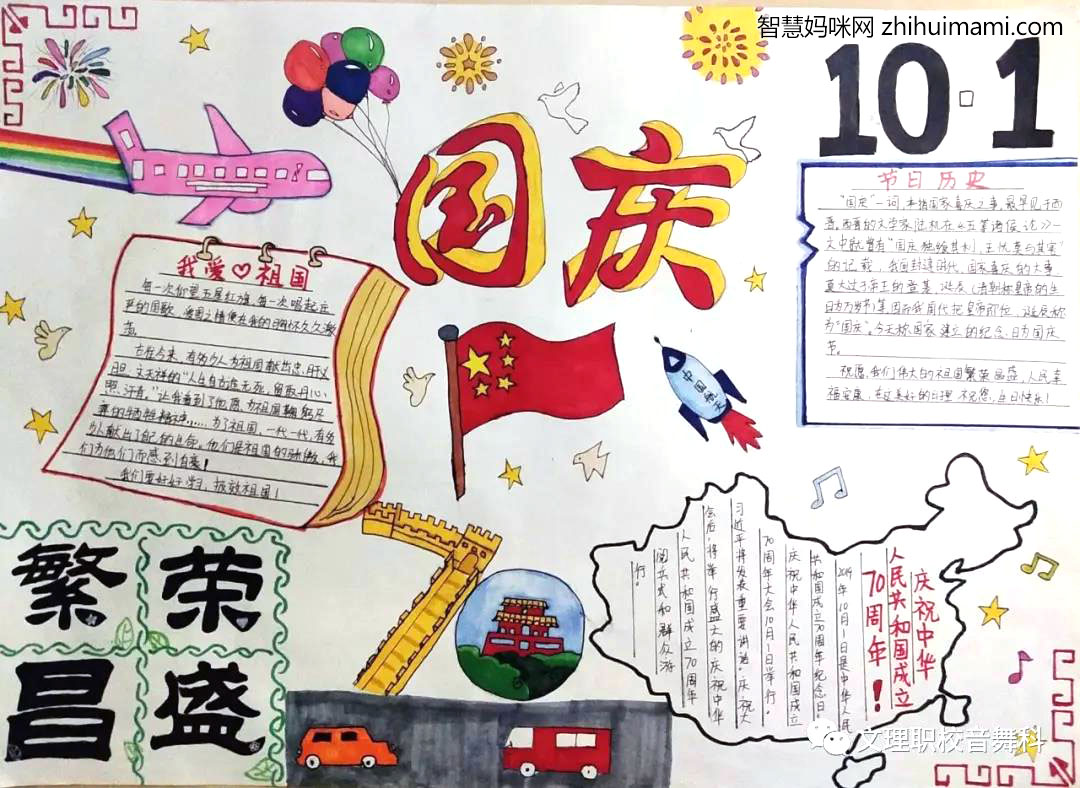 智慧妈咪网 zhihuimami.com
10·1
国庆
节日历史
"国庆"一词,本指国家喜庆之事,最早见于西
晋。西晋的文学家陆机在《五等诸侯论》一
文中就曾有"国庆独飨其利,主忧莫与其害"
的记载,我国封建时代,国家喜庆的大事
莫大过于帝王的登基、诞辰(清朝称皇帝的生
日为万岁节)等,因而我国古代把皇帝即位、诞辰称
为"国庆"。今天称国家建立的纪念日为国庆
节。
祝愿我们伟大的祖国繁荣昌盛,人民幸
福安康,在这美好的日子里不见您,生日快乐!
我爱祖国
每一次仰望五星红旗,每一次唱起庄
严的国歌,爱国之情便在我的胸怀久久激
荡。
古往今来,有多少人为祖国献出忠肝义
胆。文天祥的"人生自古谁无死,留取丹心
照汗青。"让我看到了他愿为祖国鞠躬尽
瘁的牺牲精神……为了祖国,一代一代,有多
少人献出了自己的生命,他们是祖国的骄傲,我
们为他们而感到自豪!
我们要好好学习,报效祖国!
中国航天
庆祝中华
人民共和国成立
70周年!
2019年10月1日是中华人民
共和国成立70周年纪念日。
庆祝中华人民共和国成立
70周年大会10月1日举行。
习近平将发表重要讲话。庆祝大
会后,将举行盛大的庆祝中华
人民共和国成立70周年
阅兵式和群众游
行。
繁荣
昌盛
文理职校音舞科